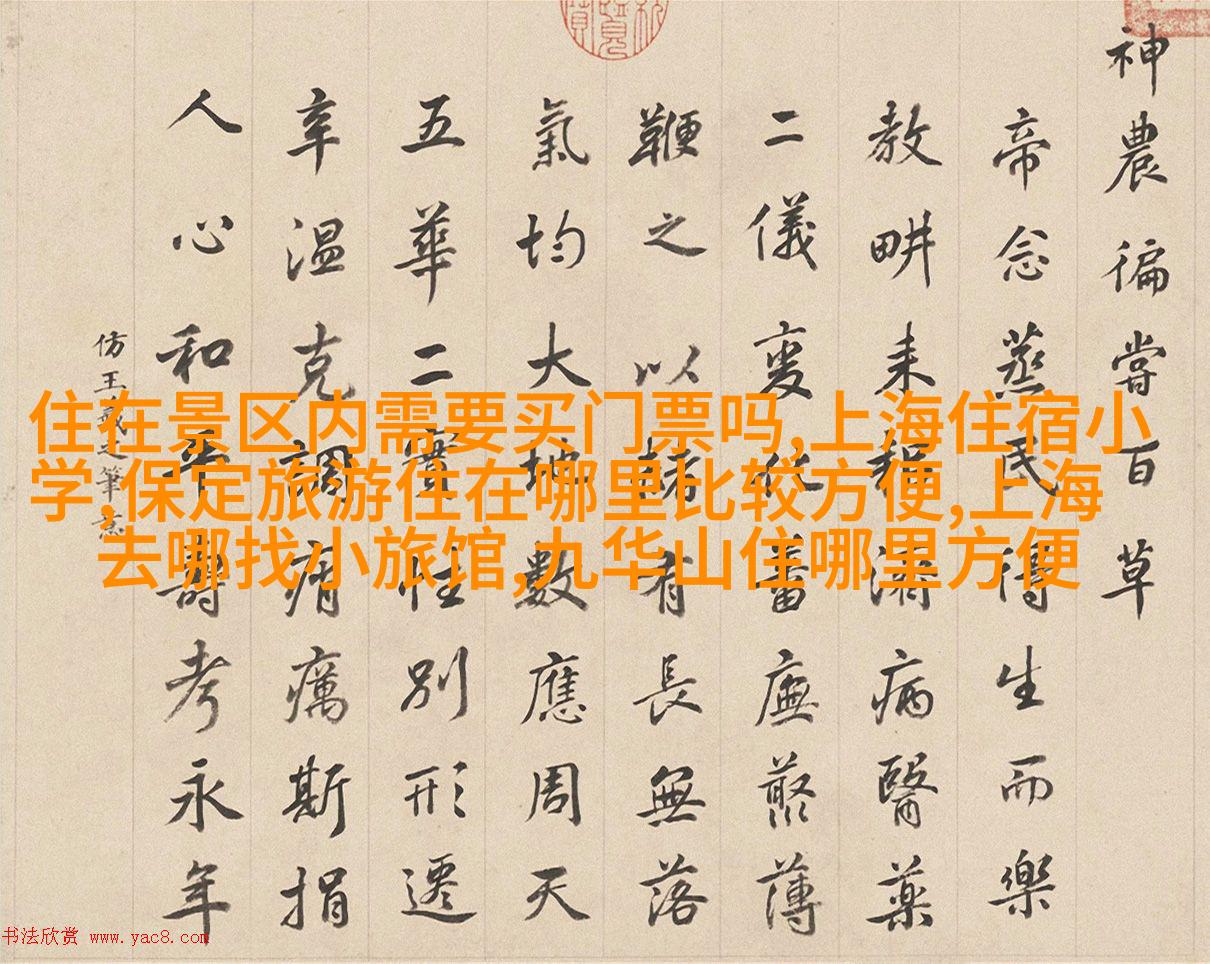 神農徧嘗百草
帝念蒸民得生而樂
教畊耒耜濟病醫藥
二儀変化蕃廡藂薄
鞭之以赭有長無落
氣均大地數應周天
五華二實性別形遷
辛温克調痟癘斯捐
人心和平壽考永年
仿王羲之筆意
住在景区内需要买门票吗,上海住宿小
学,保定旅游住在哪里比较方便,上海
去哪找小旅馆,九华山住哪里方便
书法欣赏 www.yac8.com